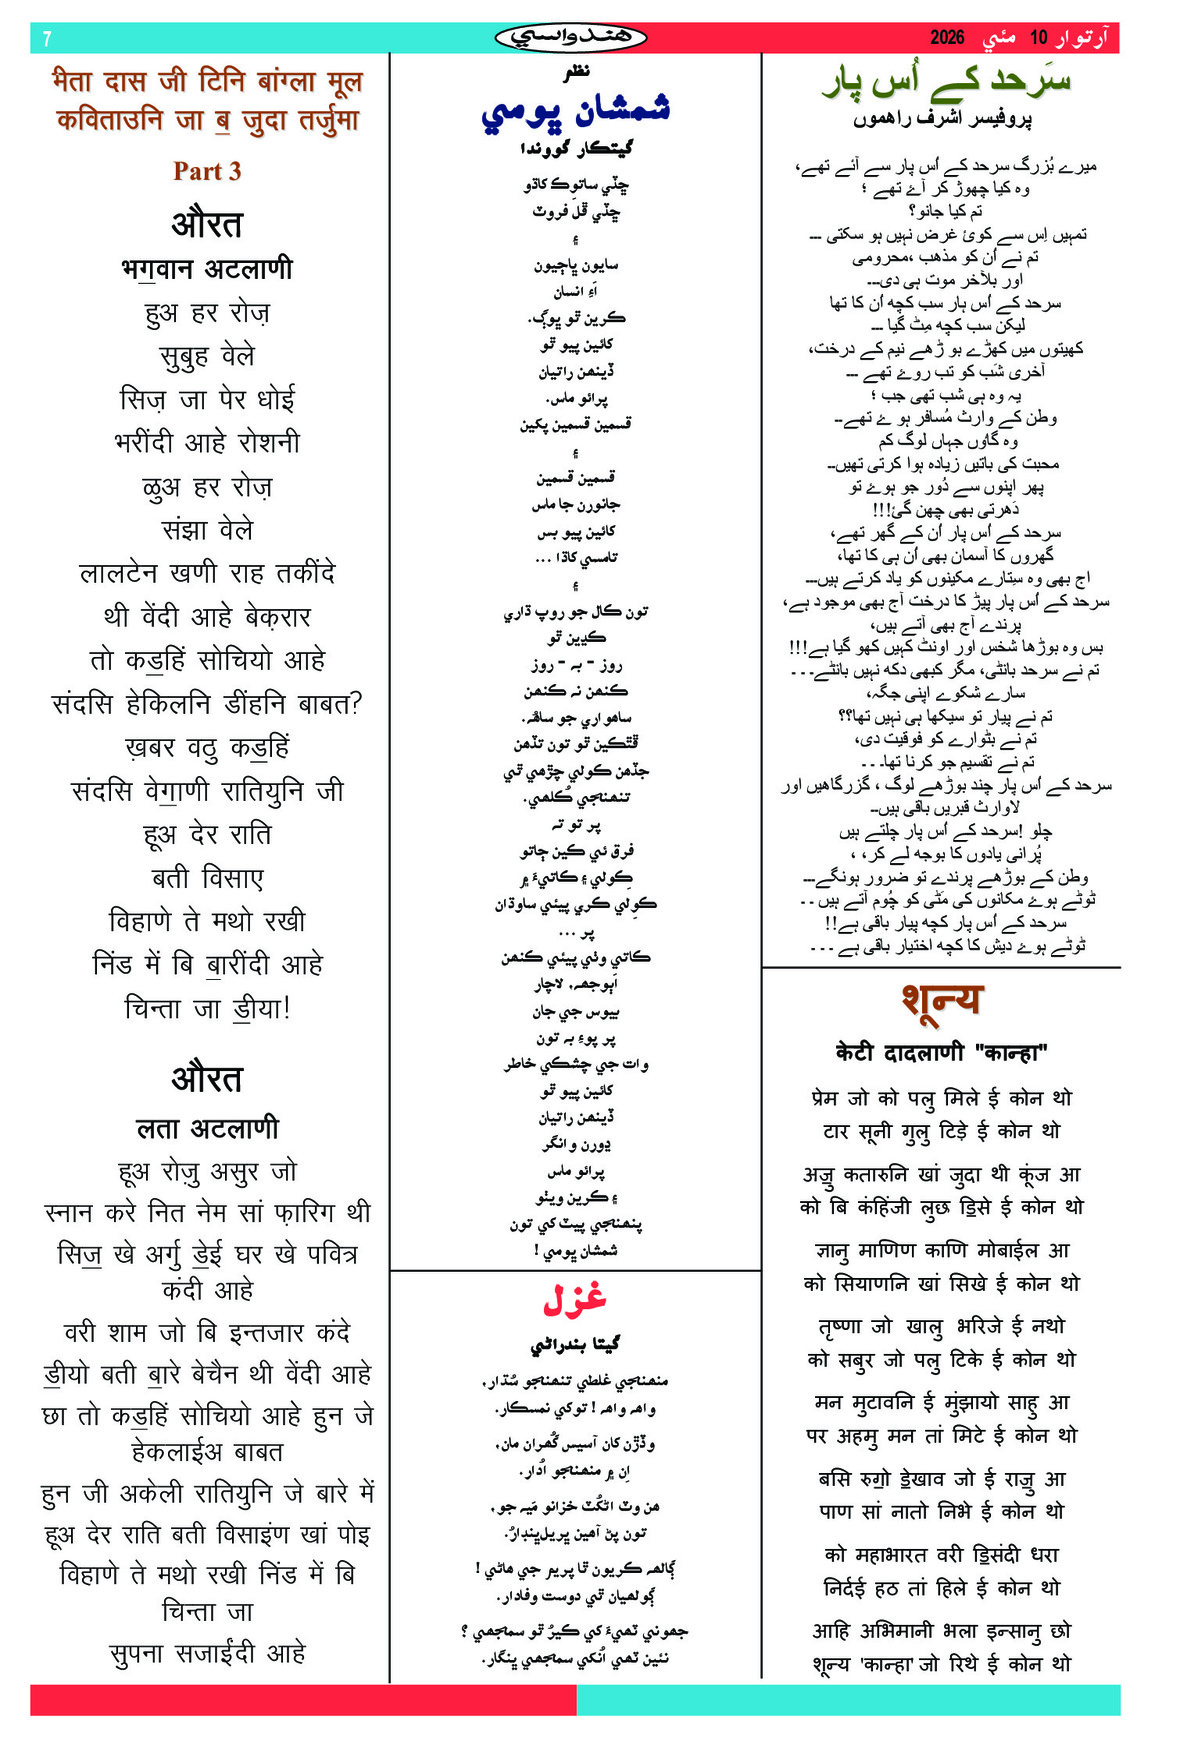 7
هندواسي
آرتوار 10 مئي 2026
मैता दास जी टिनि बांग्ला मूल
कविताउनि जा ॿ जुदा तर्जुमा
Part 3
औरत
भॻवान अटलाणी
हुअ हर रोज़
सुबुह वेले
सिज़ जा पेर धोई
भरींदी आहे रोशनी
ळुअ हर रोज़
संझा वेले
लालटेन खणी राह तकींदे
थी वेंदी आहे बेक़रार
तो कॾहिं सोचियो आहे
संदसि हेकिलनि डींहनि बाबत?
ख़बर वठु कॾहिं
संदसि वेॻाणी रातियुनि जी
हूअ देर राति
बती विसाए
विहाणे ते मथो रखी
निंड में बि ॿारींदी आहे
चिन्ता जा ॾीया!
औरत
लता अटलाणी
हूअ रोज़ु असुर जो
स्नान करे नित नेम सां फ़ारिग थी
सिॼ खे अर्गु ॾेई घर खे पवित्र
कंदी आहे
वरी शाम जो बि इन्तजार कंदे
ॾीयो बती ॿारे बेचैन थी वेंदी आहे
छा तो कॾहिं सोचियो आहे हुन जे
हेकलाईअ बाबत
हुन जी अकेली रातियुनि जे बारे में
हूअ देर राति बती विसाइंण खां पोइ
विहाणे ते मथो रखी निंड में बि
चिन्ता जा
सुपना सजाईंदी आहे
نظم
شمشان ڀومي
گيتڪار گووندا
ڇڏي ساتوِڪ کاڌو
ڇڏي ڦلَ فروٽ
۽
سايون ڀاڄيون
اَءِ انسان
ڪرين ٿو ڀوڳ.
کائين پيو ٿو
ڏينهن راتيان
پرائو ماس.
قسمين قسمين پکين
۽
قسمين قسمين
جانورن جا ماس
کائين پيو بس
تامسي کاڌا ...
۽
تون ڪال جو روپ ڌاري
ڪڍين ٿو
روز - به - روز
ڪنهن نه ڪنهن
ساهواري جو ساهُه.
ڦٿڪين ٿو تون تڏهن
جڏهن ڪولي چڙهي ٿي
تنهنجي ڪُلهي.
پر تو ته
فرق ئي ڪين ڄاتو
ڪِولي ۽ ڪاتيءَ ۾
ڪوِلي ڪري پيئي ساوڌان
پر ...
ڪاتي وئي پيئي ڪنهن
اَٻوجهه، لاچار
بيوس جي جان
پر پوءِ به تون
وات جي چشڪي خاطر
کائين پيو ٿو
ڏينهن راتيان
ڍورن وانگر
پرائو ماس
۽ ڪرين ويٺو
پنهنجي پيٽ کي تون
شمشان ڀومي !
غزل
گيتا بندراڻي
منهنجي غلطي تنهنجو سُڌار،
واهه واهه ! توکي نمسڪار.
وڏڙن کان آسيس گُهران مان،
اِن ۾ منهنجو اُڌار.
هن وٽ اڻکُٽ خزانو مَيه جو،
تون پڻ آهين ڀريل ڀنڊارُ.
ڳالهه ڪريون ٿا پريم جي هاڻي !
ڳولهيان ٿي دوست وفادار.
جهوني ٺهيءَ کي ڪيرُ ٿو سمجهي ؟
نئين ٺهي اُنکي سمجهي ڀنگار.
سَرحد کے اُس پار
پروفیسر اشرف راھموں
میرے بُزرگ سرحد کے اُس پار سے آئے تھے،
وہ کیا چھوڑ کر آۓ تھے ؛
تم کیا جانو؟
تمہیں اِس سے کوئ غرض نہیں ہو سکتی ---
تم نے اُن کو مذھب ،محرومی
اور بلاَخر موت ہی دی---
سرحد کے اُس پار سب کچھ اُن کا تھا
لیکن سب کچھ مِٹ گیا ---
کھیتوں میں کھڑے بو ڑھے نیم کے درخت،
آخری شَب کو تب روۓ تھے ---
یہ وہ ہی شب تھی جب ؛
وطن کے وارث مُسافر ہو ۓ تھے--
وہ گاؤں جہاں لوگ کم
محبت کی باتیں زیادہ ہوا کرتی تھیں--
پھر اپنوں سے دُور جو ہوۓ تو
دَھرتی بھی چھن گئ!!!
سرحد کے اُس پار اُن کے گھر تھے،
گھروں کا آسمان بھی اُن ہی کا تھا،
اج بھی وہ سِتارے مکینوں کو یاد کرتے ہیں---
سرحد کے اُس پار پیڑ کا درخت آج بھی موجود ہے،
پرندے آج بھی آتے ہیں،
بس وہ بوڑھا شخس اور اونٹ کہیں کھو گیا ہے!!!
تم نے سرحد بانٹی، مگر کبھی دکھ نہیں بانٹے---
سارے شکوے اپنی جگہ،
تم نے پیار تو سیکھا ہی نہیں تھا؟؟
تم نے بٹوارے کو فوقیت دی،
تم نے تقسیم جو کرنا تھا---
سرحد کے اُس پار چند بوڑھے لوگ ، گزرگاھیں اور
لاوارث قبریں باقی ہیں--
چلو !سرحد کے اُس پار چلتے ہیں
پُرانی یادوں کا بوجھ لے کر، ،
وطن کے بوڑھے پرندے تو ضرور ہونگے---
ٹوٹے ہوۓ مکانوں کی مَٹی کو چُوم آتے ہیں --
سرحد کے اُس پار کچھ پیار باقی ہے!!
ٹوٹے ہوۓ دیش کا کچھ اختیار باقی ہے ---
शून्य
केटी दादलाणी "कान्हा"
प्रेम जो को पलु मिले ई कोन थो
टार सूनी गुलु टिड़े ई कोन थो
अॼु कतारुनि खां जुदा थी कूंज आ
को बि कंहिंजी लुछ ॾिसे ई कोन थो
ज्ञानु माणिण काणि मोबाईल आ
को सियाणनि खां सिखे ई कोन थो
तृष्णा जो खालु भरिजे ई नथो
को सबुर जो पलु टिके ई कोन थो
मन मुटावनि ई मुंझायो साहु आ
पर अहमु मन तां मिटे ई कोन थो
बसि रुॻो ॾेखाव जो ई राॼु आ
पाण सां नातो निभे ई कोन थो
को महाभारत वरी ॾिसंदी धरा
निर्दई हठ तां हिले ई कोन थो
आहि अभिमानी भला इन्सानु छो
शून्य 'कान्हा' जो रिथे ई कोन थो